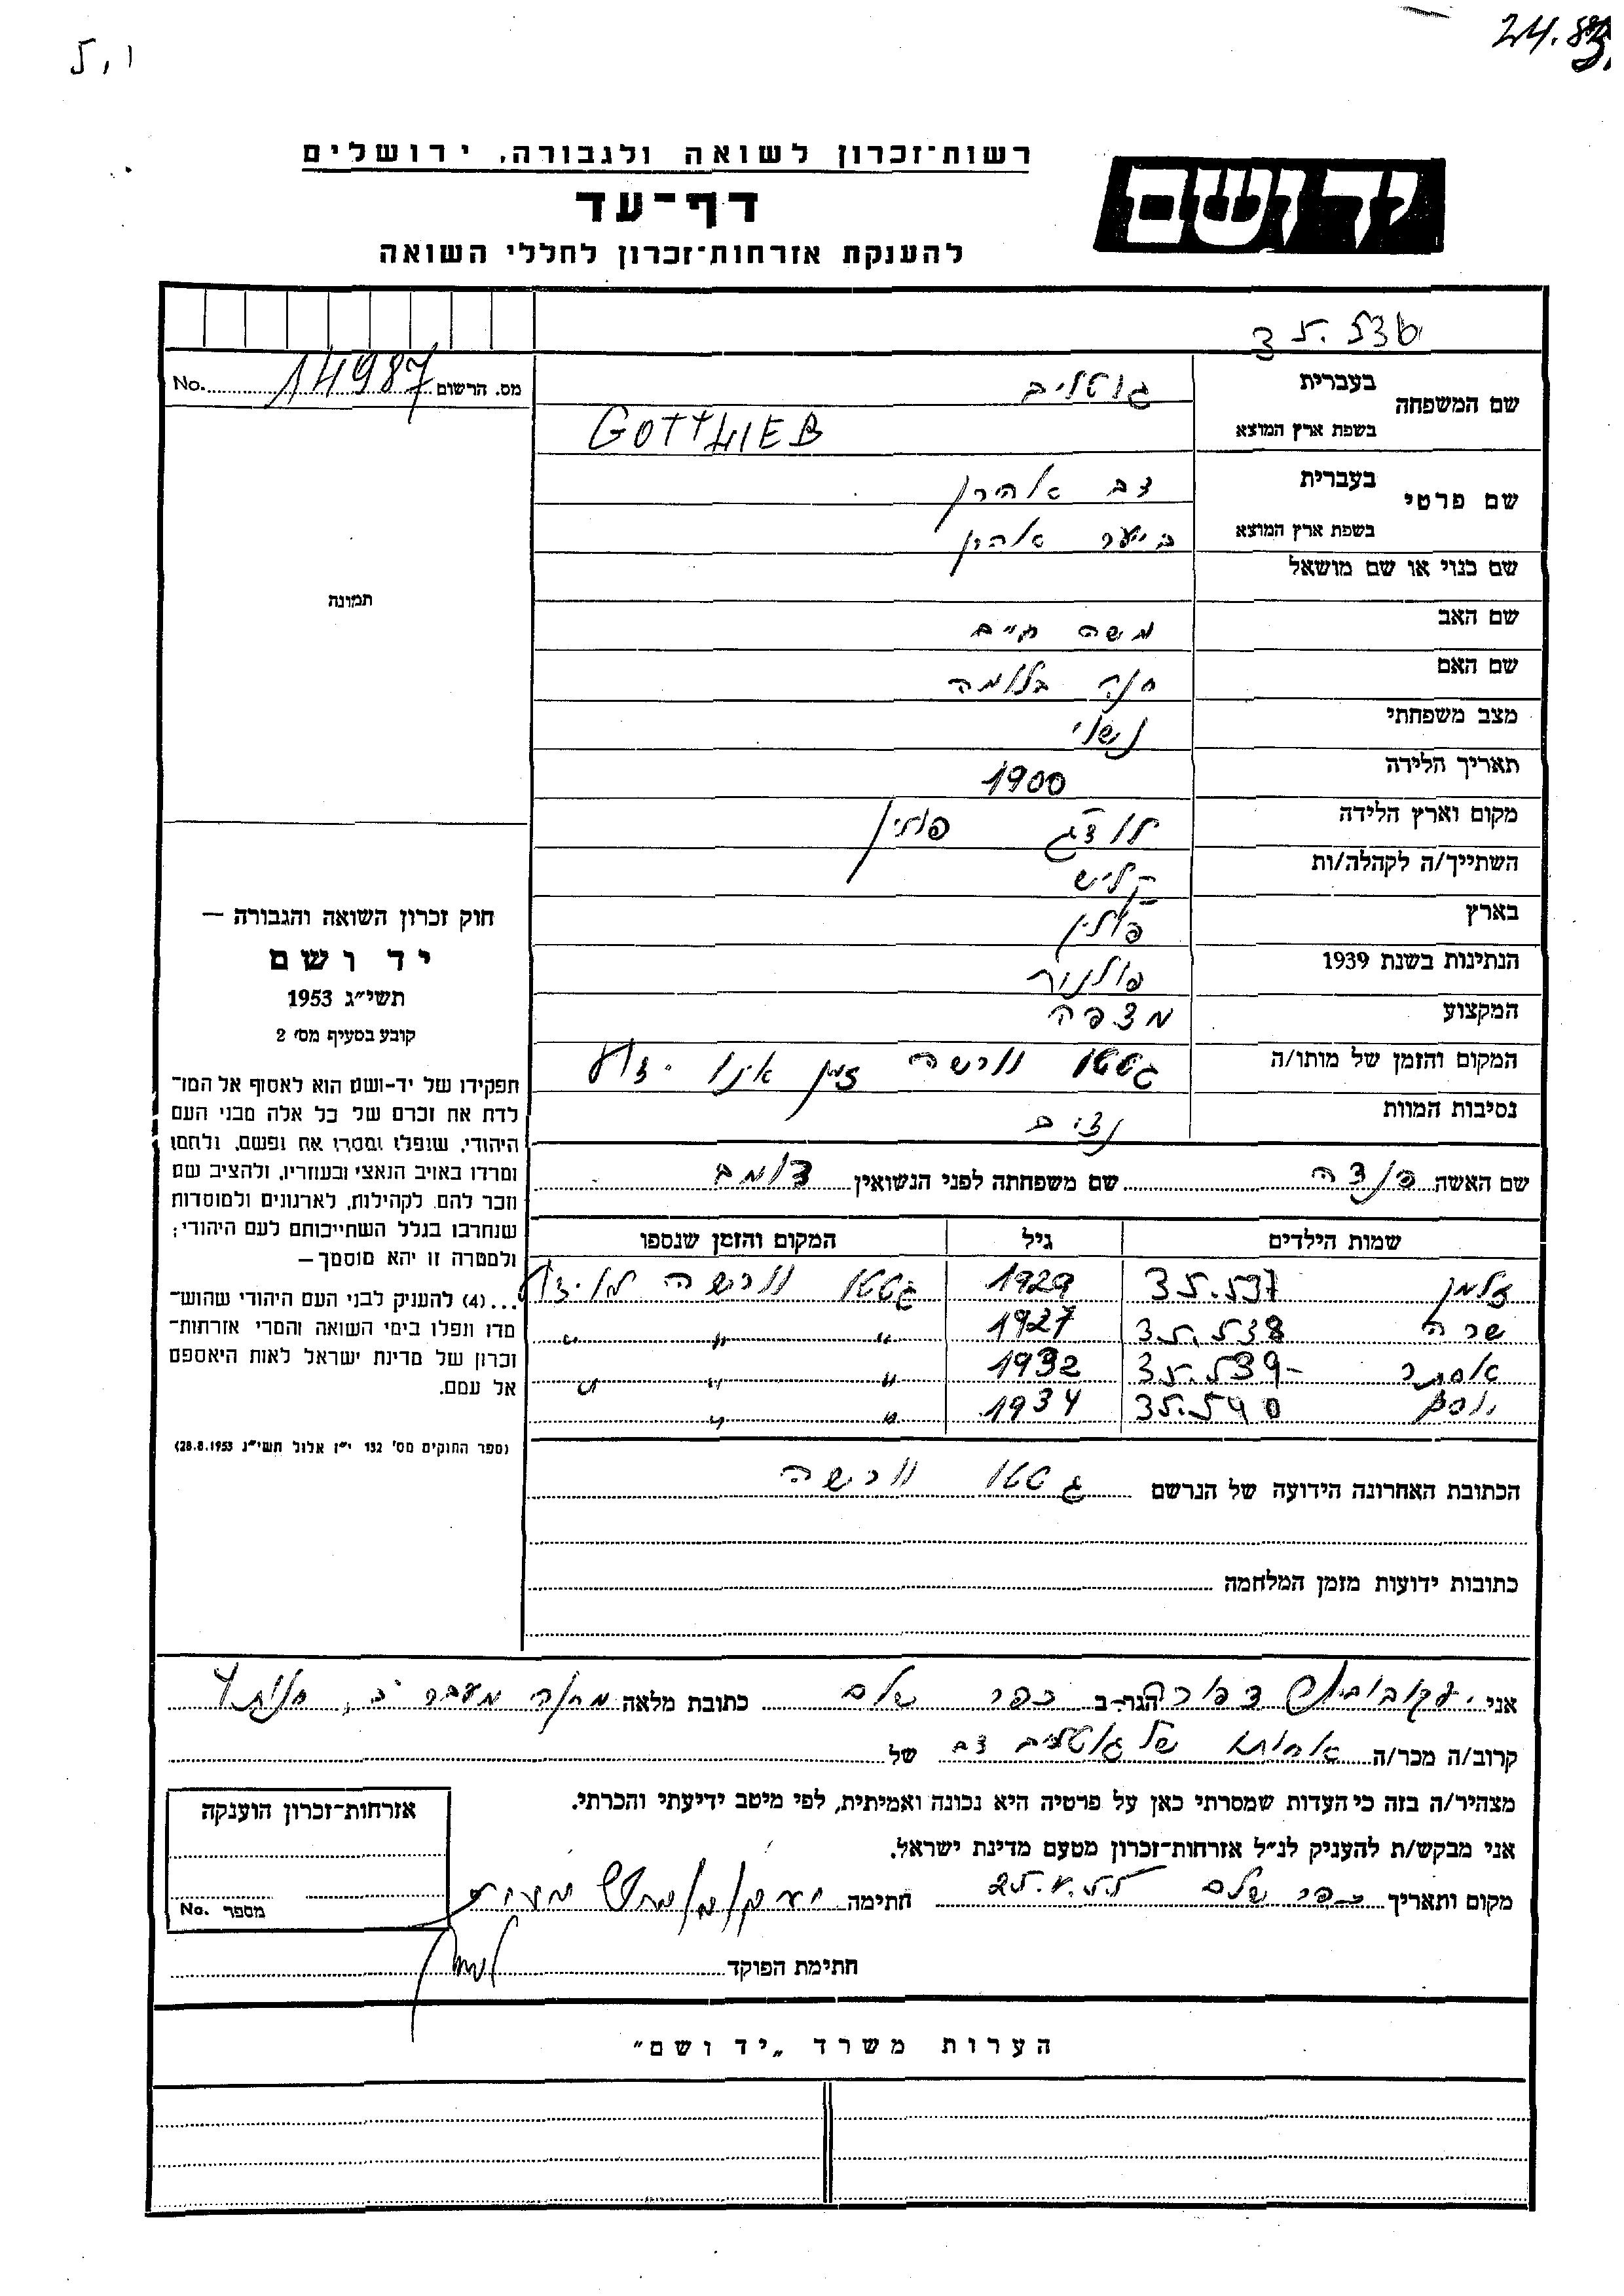 24.
רשות־זכרון לשואה ולגבורה, ירושלים
יד ושם
דף־עד
להענקת אזרחות־זכרון לחללי השואה
35.536
מס. הרשום 14987 No.
שם המשפחה בעברית גוטליב
בשפת ארץ המוצא GOTTLIEB
שם פרטי בעברית צבי אהרן
בשפת ארץ המוצא אהרן
שם כנוי או שם מושאל
תמונה
שם האב משה חיים
שם האם חנה בלומה
מצב משפחתי נשוי
תאריך הלידה 1900
מקום וארץ הלידה לודג פולין
השתייך/ה לקהלה/ות קליש
בארץ פולין
הנתינות בשנת 1939
המקצוע
המקום והזמן של מותו/ה גטטו וורשה זמן אינו ידוע
נסיבות המוות
שם האשה שם משפחתה לפני הנשואין
שמות הילדים גיל המקום והזמן שנספו
זלמן 35.537 1929 גטטו וורשה לא ידוע
שרה 35.538 1927 " " "
אסתר 35.539- 1932 " " "
35.540 1934 " "
הכתובת האחרונה הידועה של הנרשם גטטו וורשה
כתובות ידועות מזמן המלחמה
חוק זכרון השואה והגבורה —
יד ושם
תשי״ג 1953
קובע בסעיף מס׳ 2
תפקידו של יד-ושם הוא לאסוף אל המו־
לדת את זכרם של כל אלה מבני העם
היהודי, שנפלו ומסרו את נפשם, ולחמו
ומרדו באויב הנאצי ובעוזריו, ולהציב שם
וזכר להם, לקהילות, לארגונים ולמוסדות
שנחרבו בגלל השתייכותם לעם היהודי;
ולמטרה זו יהא מוסמך—
...(4) להעניק לבני העם היהודי שהוש־
מדו ונפלו בימי השואה והמרי אזרחות־
זכרון של מדינת ישראל לאות היאספם
אל עמם.
(ספר החוקים מס׳ 132 י״ז אלול תשי״ג 28.8.1953)
אני הגר ב כפר שלם כתובת מלאה
קרוב/ה מכר/ה אחותו של גוטליב צבי של
מצהיר/ה בזה כי העדות שמסרתי כאן על פרטיה היא נכונה ואמיתית, לפי מיטב ידיעתי והכרתי.
אני מבקש/ת להעניק לנ״ל אזרחות־זכרון מטעם מדינת ישראל.
מקום ותאריך כפר שלם 25.V.55 חתימה
חתימת הפוקד
אזרחות־זכרון הוענקה
מספר No.
הערות משרד „יד ושם״